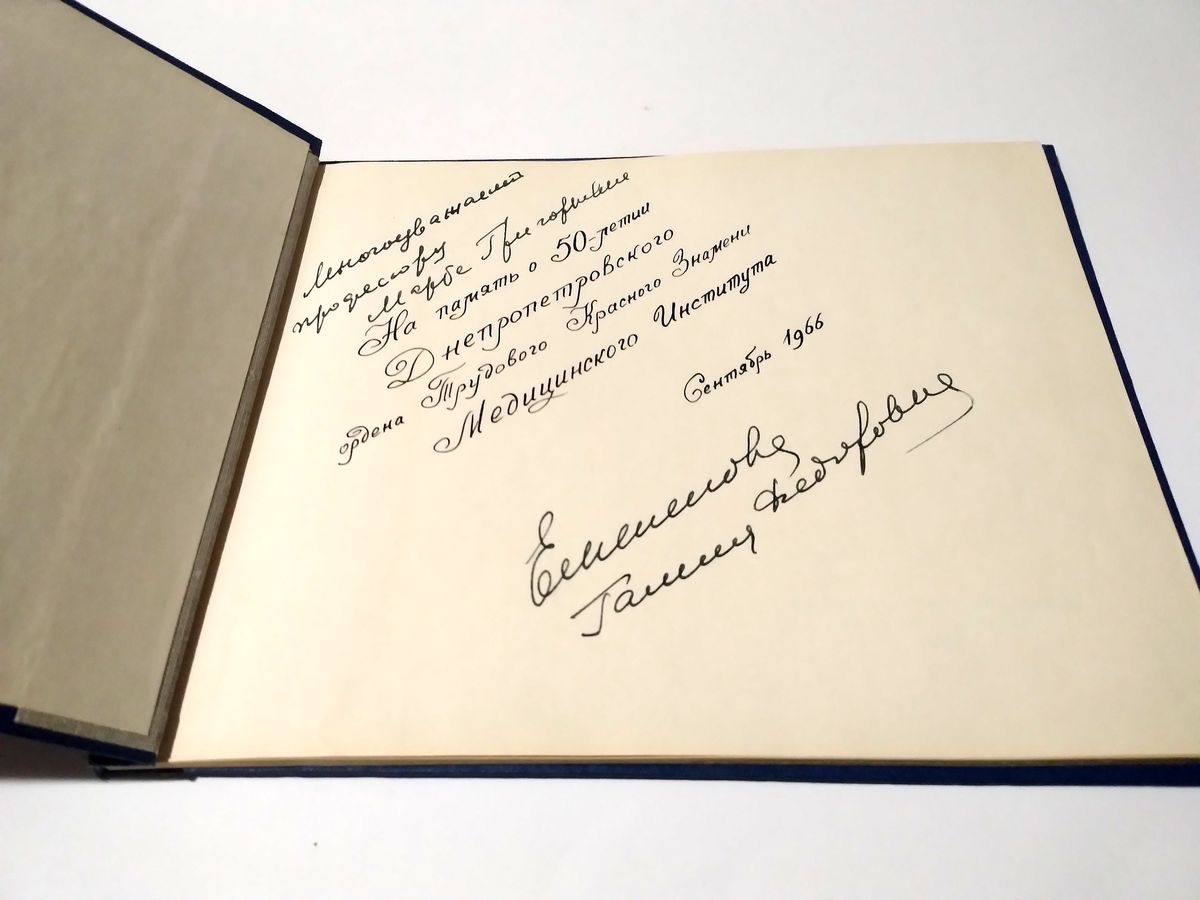 Многоуважаемой
профессору
Марье Григорьевне
На память о 50-летии
Днепропетровского
ордена Трудового Красного Знамени
Медицинского Института
Сентябрь 1966
Галина Федоровна